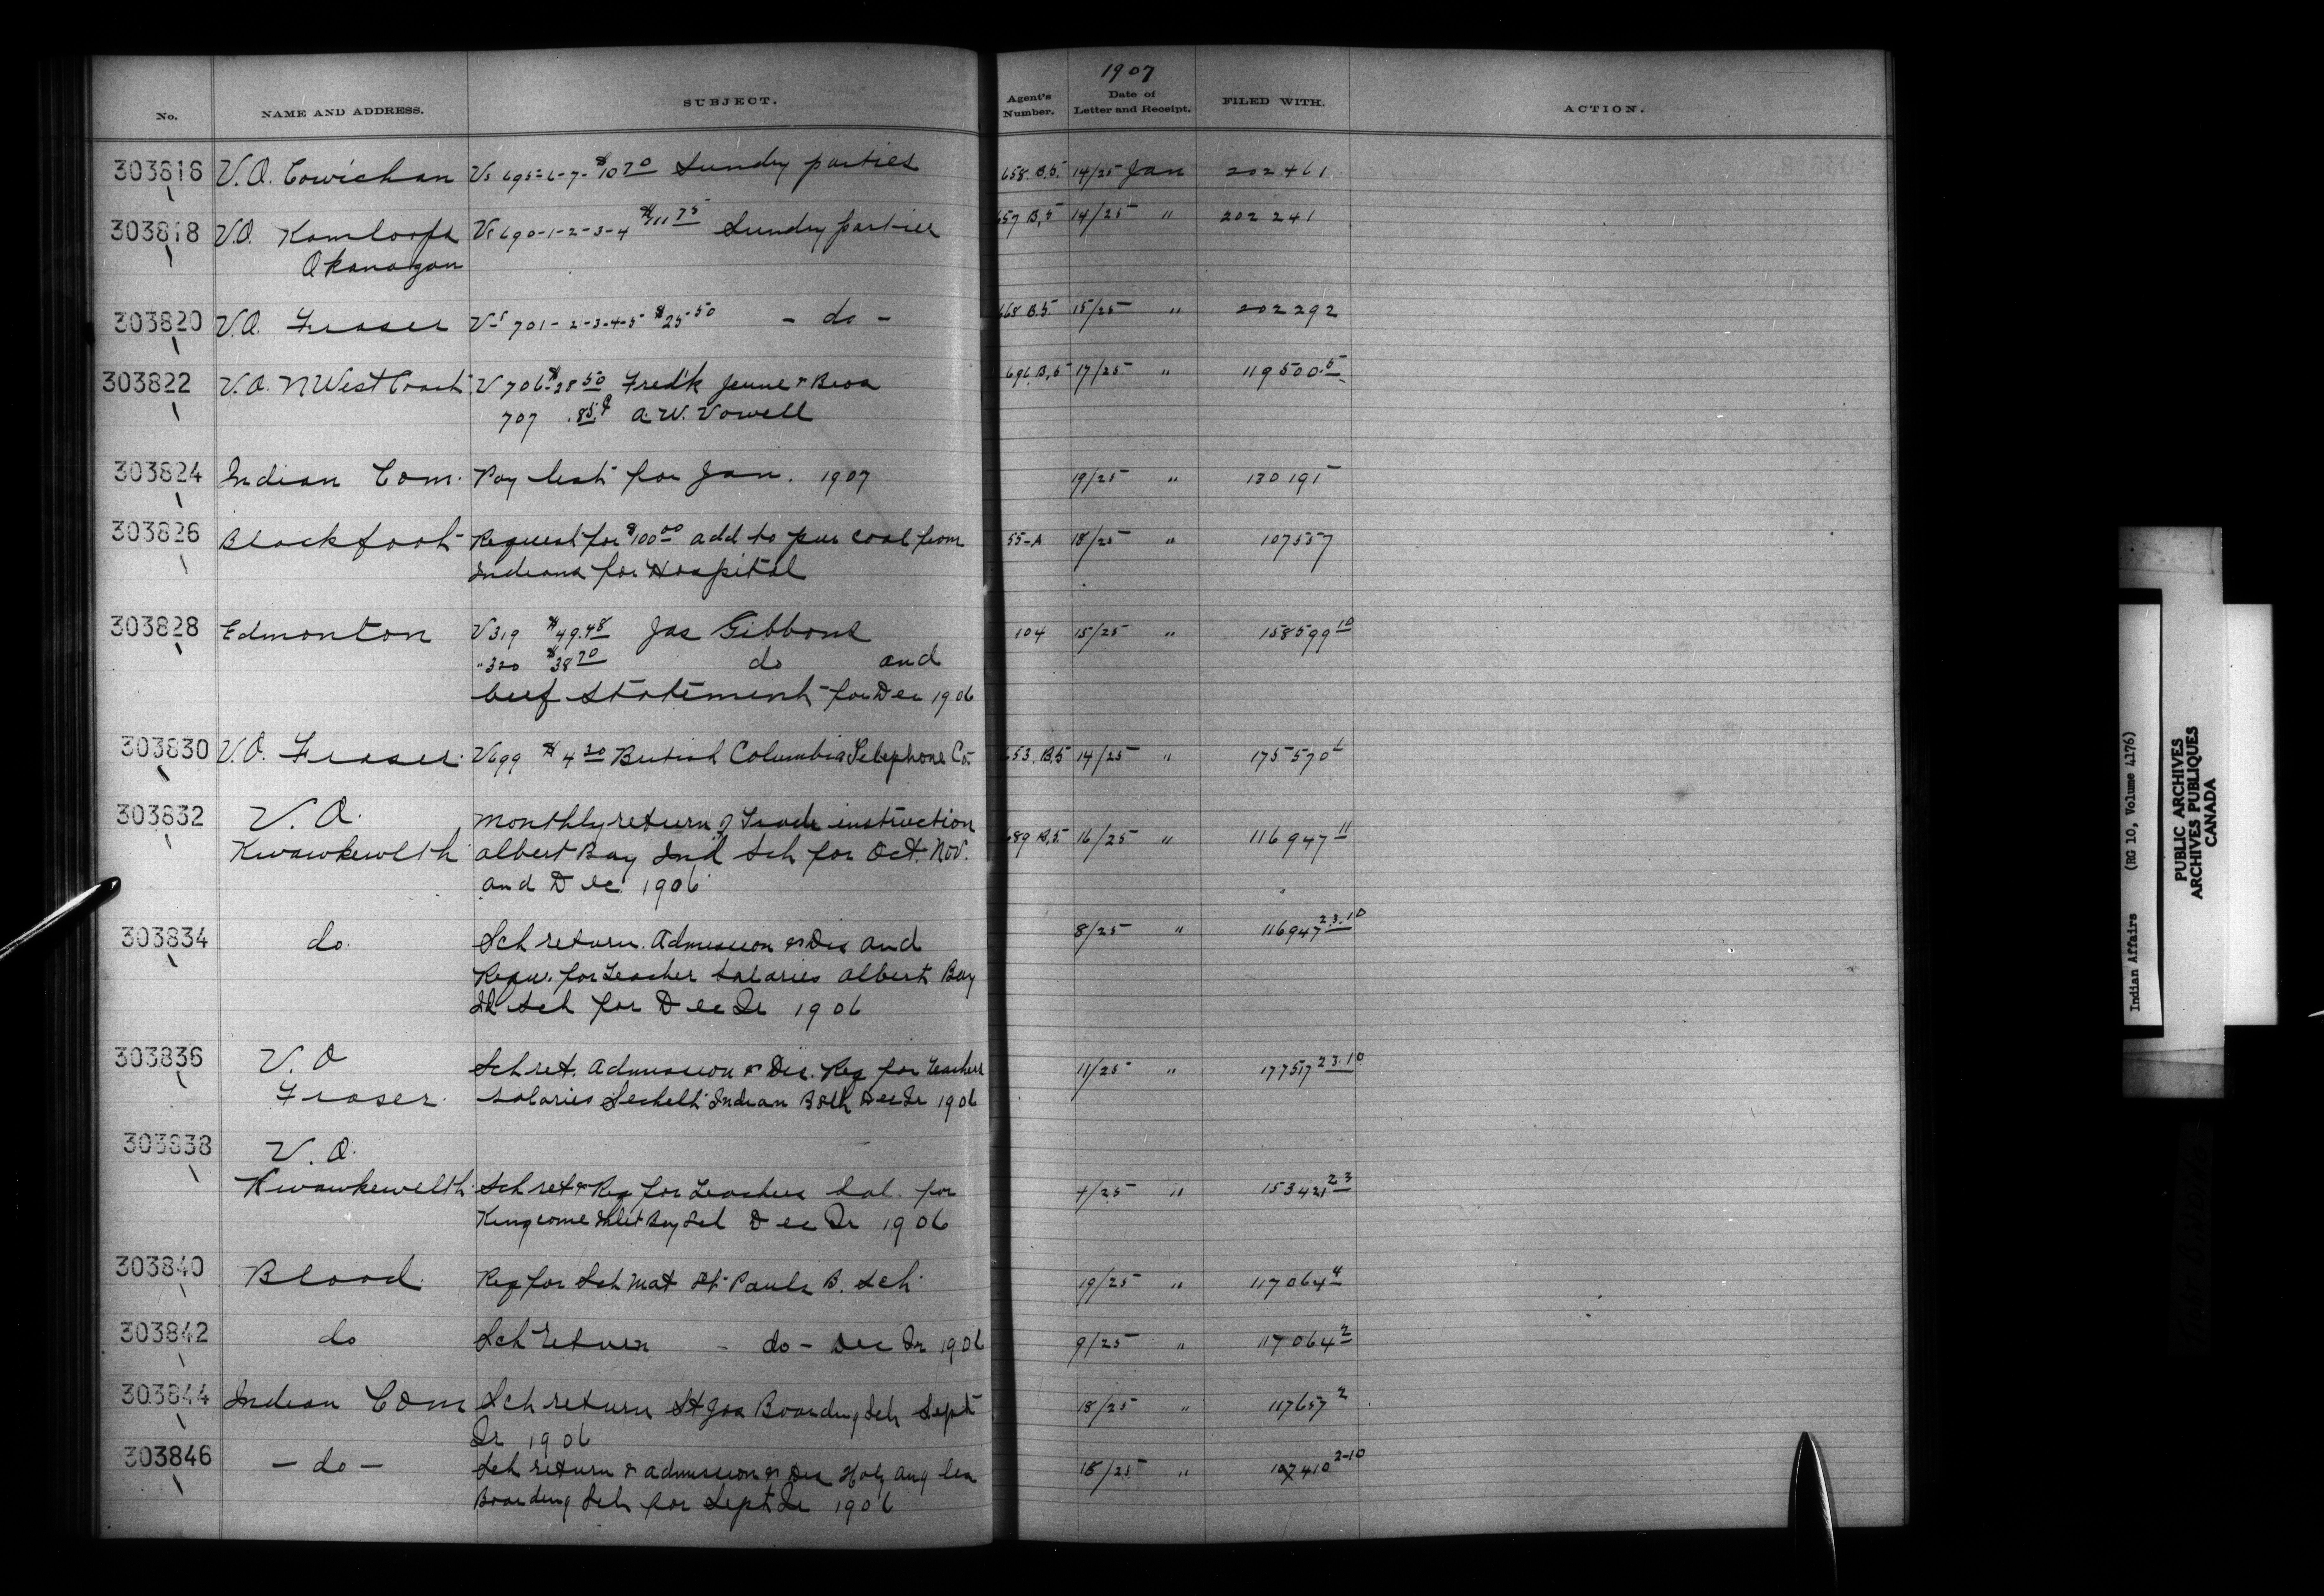 1907
No. NAME AND ADDRESS. SUBJECT. Agent's Number. Date of Letter and Receipt. FILED WITH. ACTION.
303816 V.O. Cowichan Vs 695-6-7- $10 70 Sundry parties 658. B.5. 14/25 Jan 202461
303818 V.O. Kamloops Vs 690-1-2-3-4 $11 75 Sundry parties 657 B,5 14/25 " 202241
Okanagan
303820 V.O. Fraser Vs 701-2-3-4-5 $25.50 - do - 668 B.5. 15/25 " 202292
303822 V.O. N West Coast V 706 $28 50 Fred'k Jenne & Bros 696 B,5 17/25 " 119500.5
707 .85 A. W. Vowell
303824 Indian Com. Pay list for Jan. 1907 19/25 " 130191
303826 Blackfoot Request for $100 00 add to pur coal from 55-A 18/25 " 107557
Indians for Hospital
303828 Edmonton V 319 $49.48 Jas Gibbons 104 15/25 " 158599 10
" 320 $38 70 do and
beef statement for Dec 1906
303830 V.O. Fraser. V 699 $4 30 British Columbia Telephone Co. 653. B.5 14/25 " 175570
303832 V. O. Monthly return of Trade instruction
Kwawkewlth Albert Bay Ind Sch for Oct. Nov. 689 B,5. 16/25 " 116947 11
and Dec. 1906
303834 do. Sch return. Admission & Dis and 8/25 " 116947 2.3.10
Requ. for Teacher salaries Albert Bay
Sch for Dec Qr 1906
303836 V. O Sch ret. Admission & Dis. Req for Teachers 11/25 " 177517 2.3.10
Fraser. salaries Sechelt Indian B Sch Dec Qr 1906
303838 V. O.
Kwawkewelth Sch ret & Req for Teachers Sal. for /25 " 153421 2-3
Kingcome Inlet Day Sch Dec Qr 1906
303840 Blood. Req for Sch Mat St Pauls B. Sch. 19/25 " 117064 4
303842 do Sch return - do - Dec Qr 1906 9/25 " 117064 2
303844 Indian Com Sch return St Jos Boarding Sch Sept 18/25 " 117657 2
Qr 1906
303846 - do - Sch return & admission & Dis Holy Ang 18/25 " 107410 2-10
Boarding Sch for Sept Qr 1906
Indian Affairs (RG 10, Volume 4176)
PUBLIC ARCHIVES
ARCHIVES PUBLIQUES
CANADA